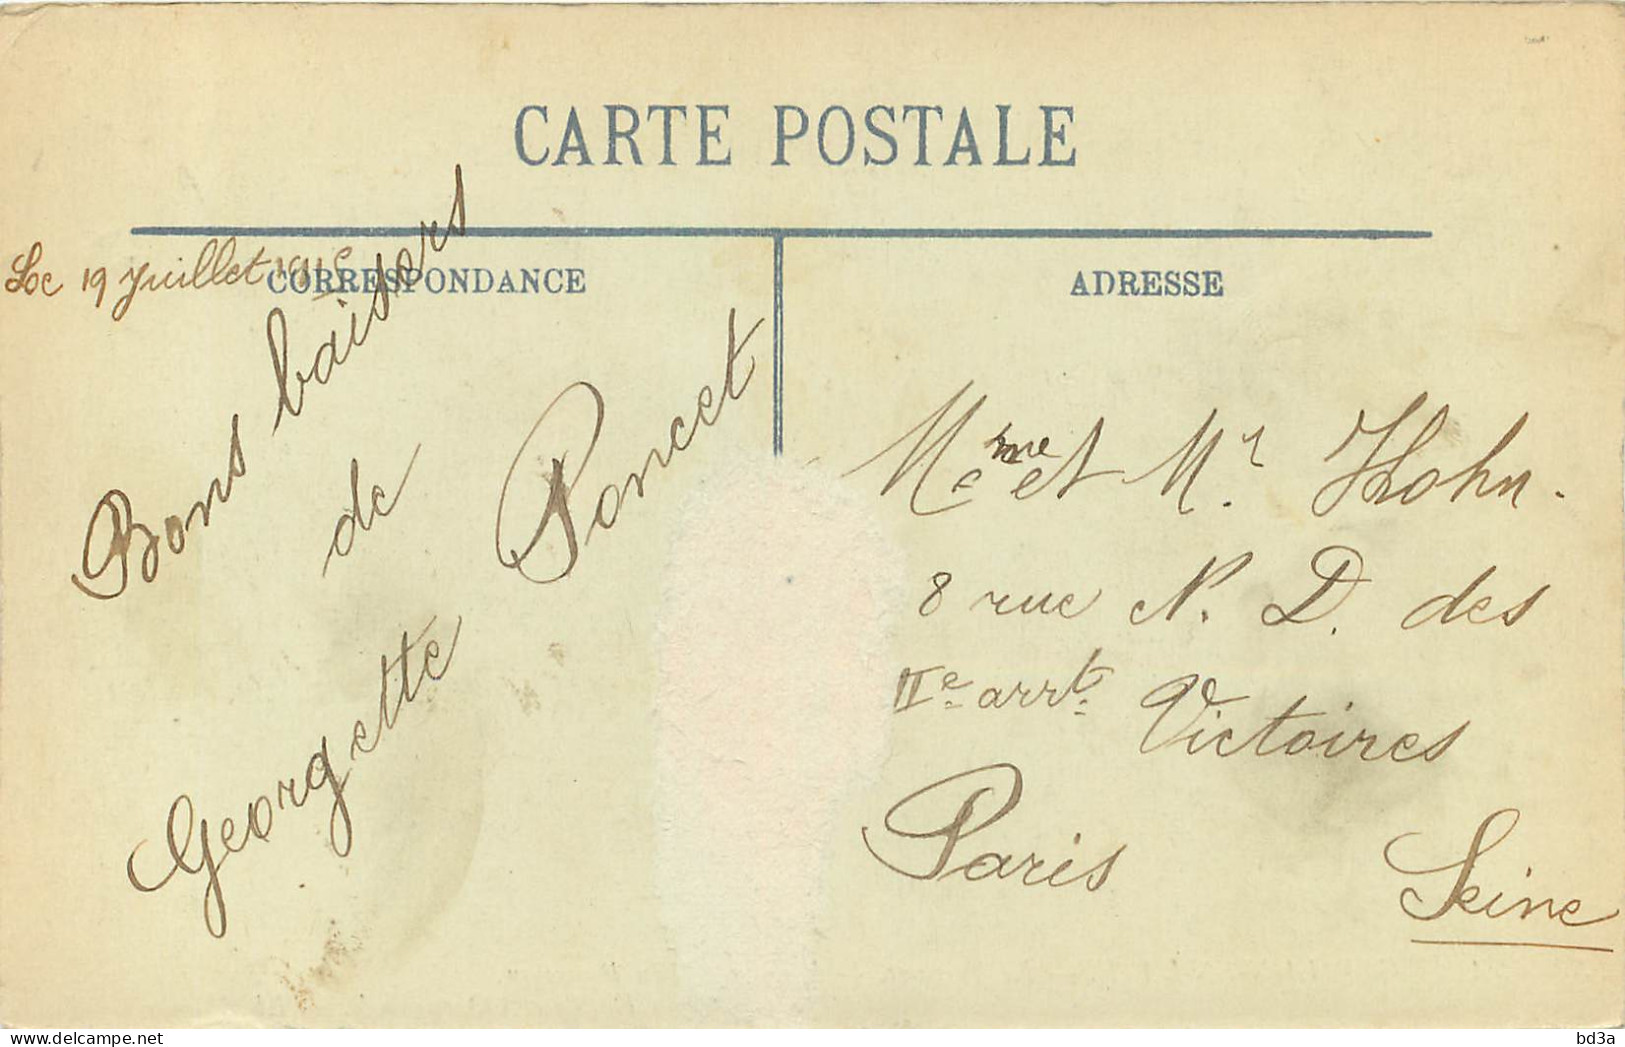 CARTE POSTALE
CORRESPONDANCE
ADRESSE
Le 19 Juillet
Bons baisers
de
Georgette Poncet
Mme et Mr Khohn.
8 rue N. D. des
IIe arrt Victoires
Paris
Seine
bd3a